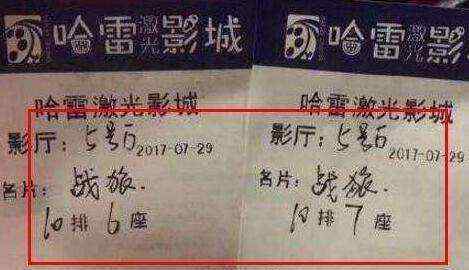 哈雷激光影城
哈雷激光影城
影厅：5号 2017-07-29
名片：战狼.
10排6座
哈雷激光影城
哈雷激光影城
影厅：5号 2017-07-29
名片：战狼.
10排7座